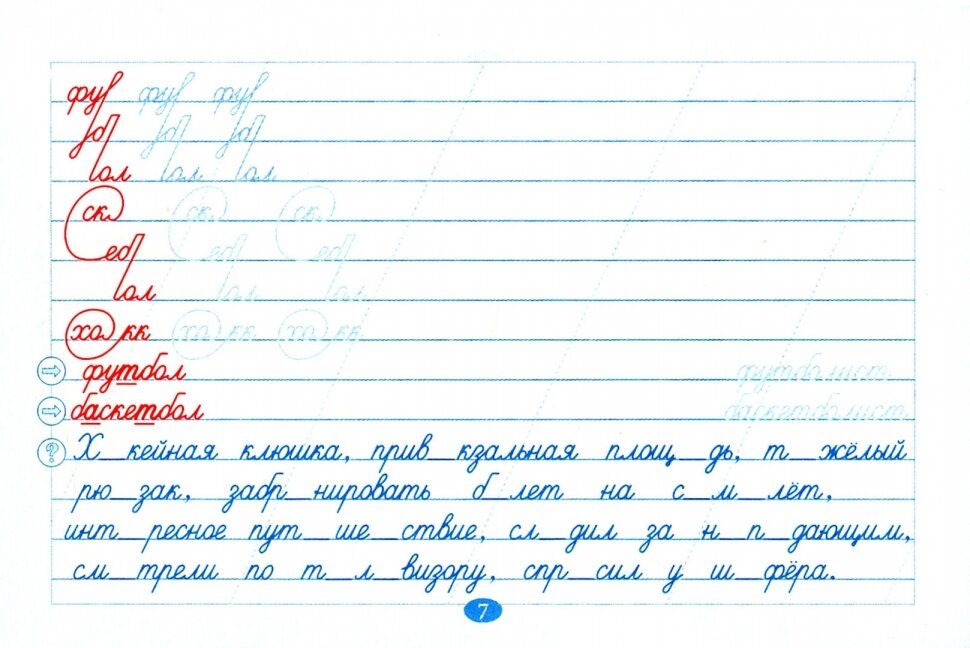 фут фут фут
тб тб тб
бол бол бол
ск ск ск
етб
бол бол бол
хо кк хо кк хо кк
футбол футболист
баскетбол баскетболист
Х_кейная клюшка, прив_кзальная площ_дь, т_жёлый
рю_зак, забр_нировать б_лет на с_м_лёт,
инт_ресное пут_ше_ствие, сл_дил за н_п_дающим,
см_трели по т_л_визору, спр_сил у ш_фёра.
7